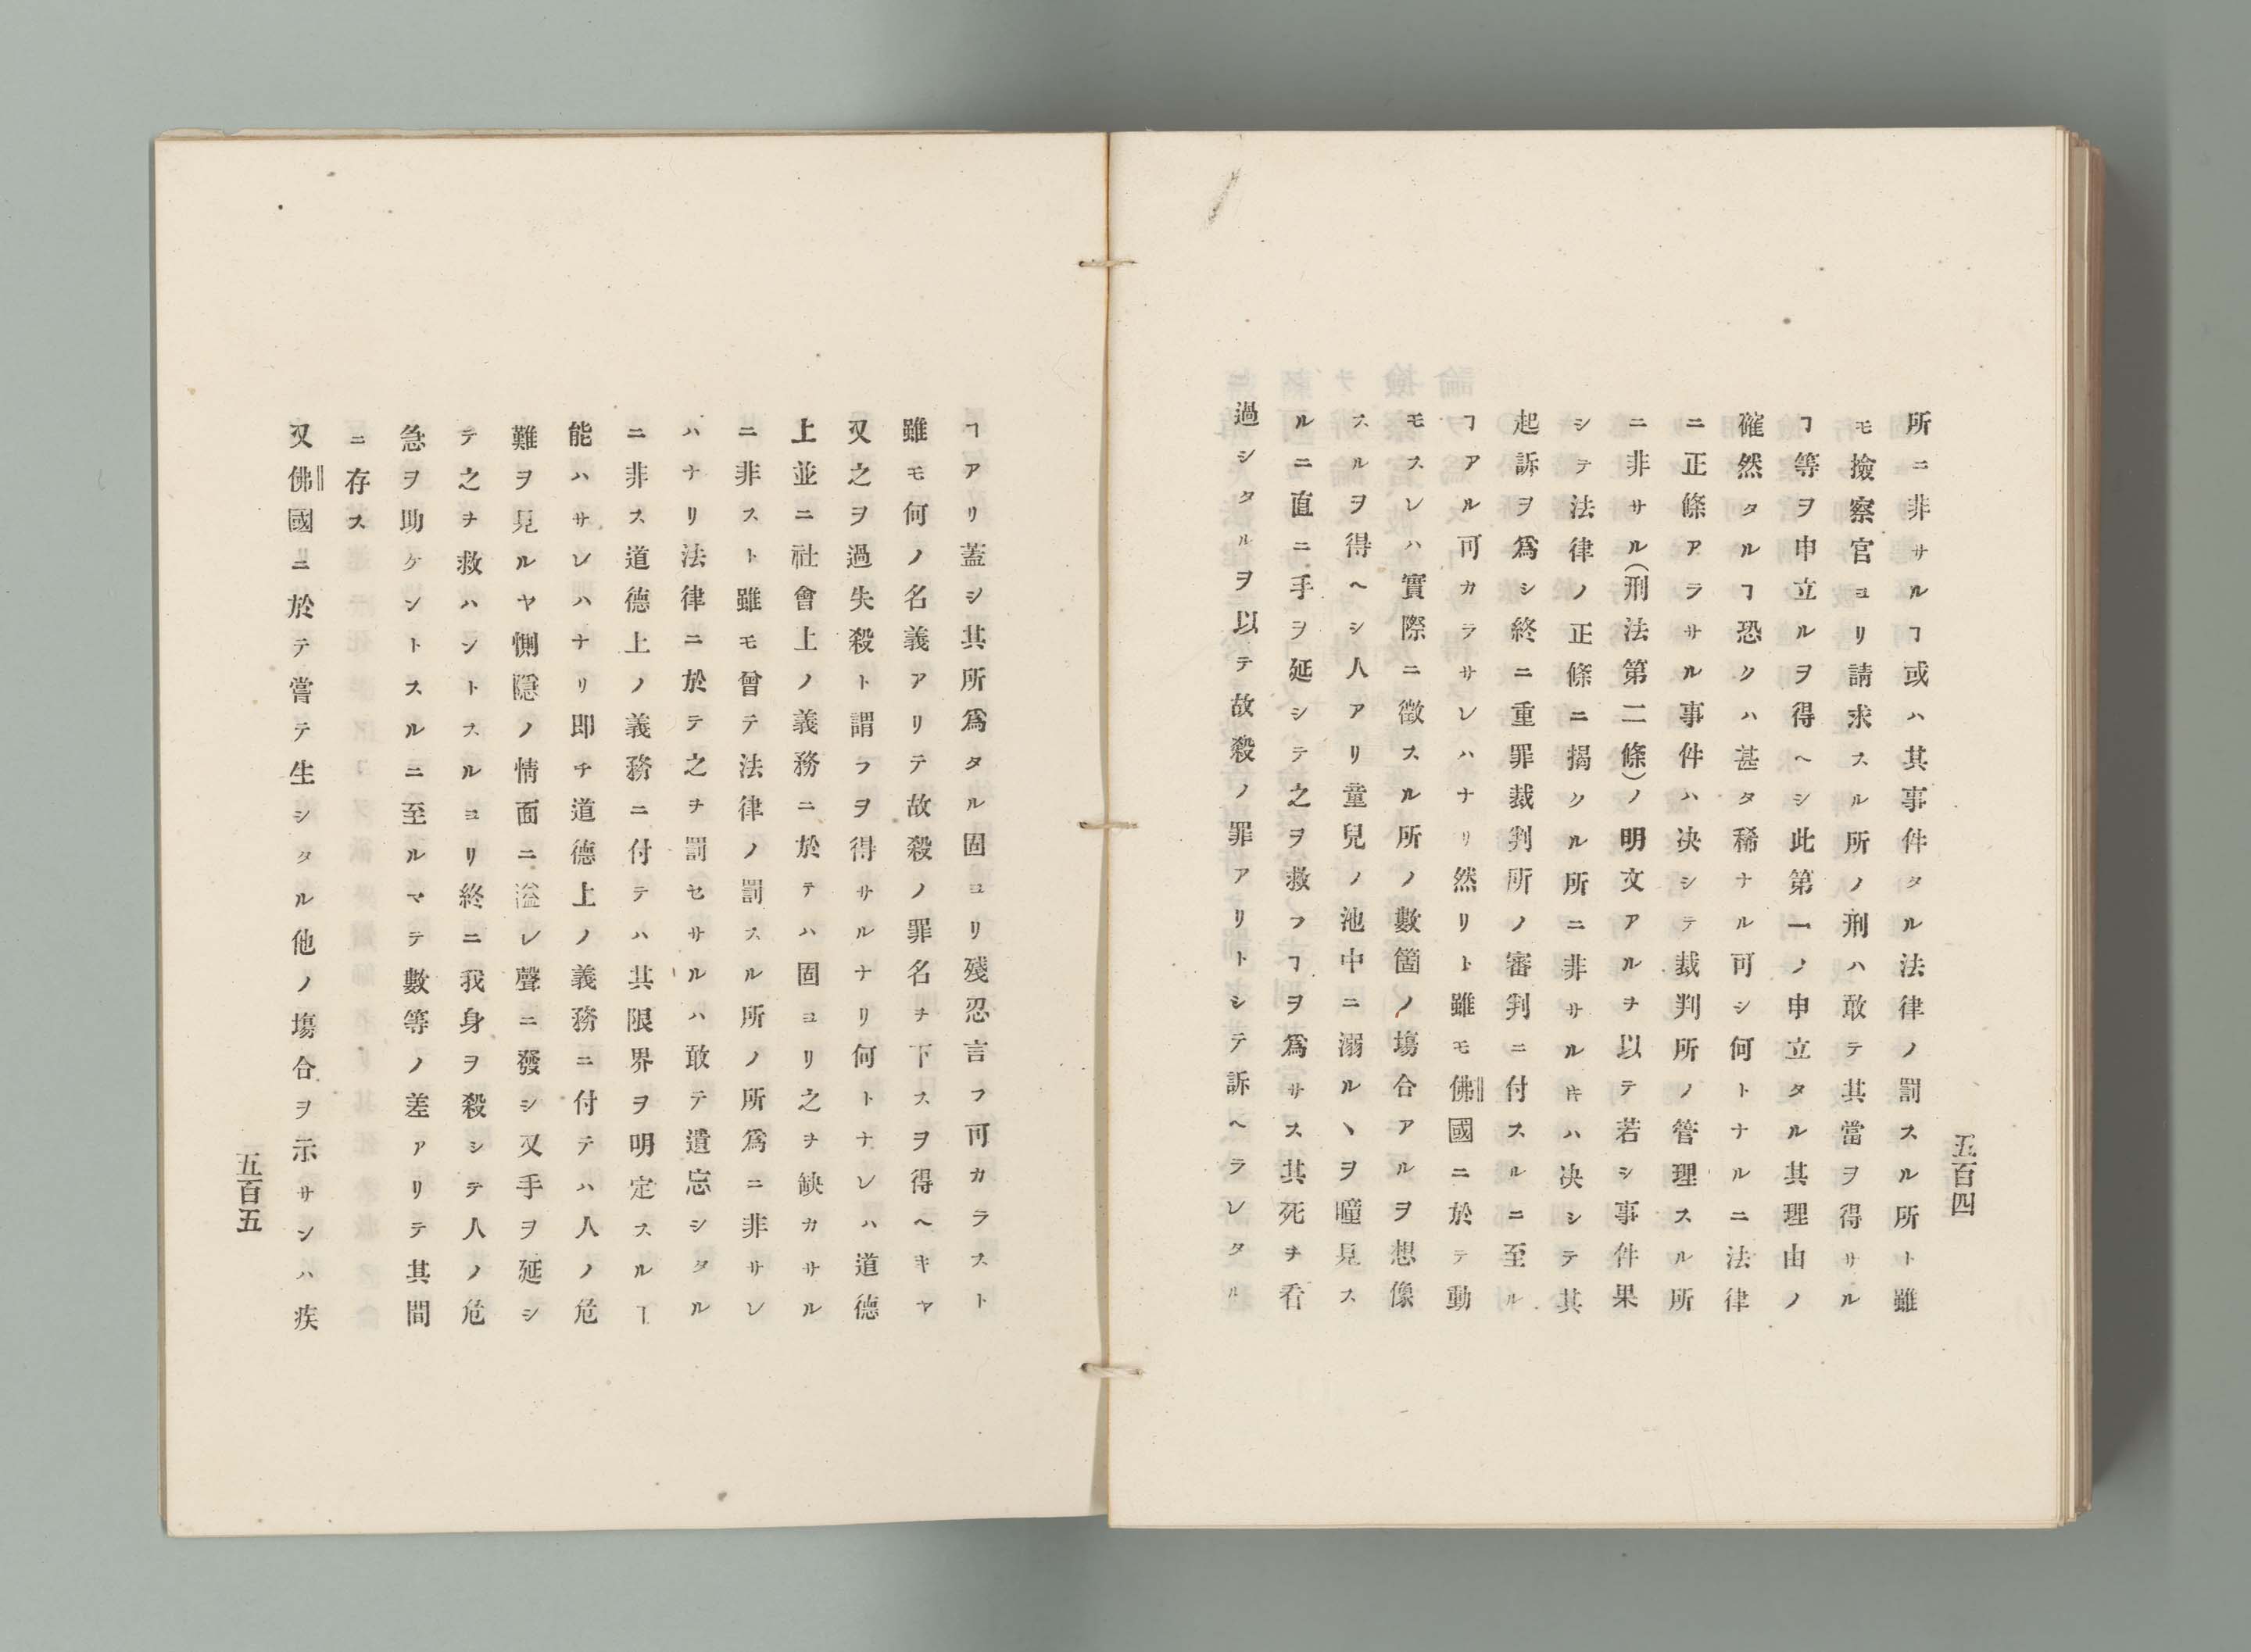 五百四
所ニ非サルヿ或ハ其事件タル法律ノ罰スル所ト雖
モ撿察官ヨリ請求スル所ノ刑ハ敢テ其當ヲ得サル
ヿ等ヲ申立ルヲ得ヘシ此第一ノ申立タル其理由ノ
確然タルヿ恐クハ甚タ稀ナル可シ何トナルニ法律
ニ正條アラサル事件ハ决シテ裁判所ノ管理スル所
ニ非サル(刑法第二條)ノ明文アルヲ以テ若シ事件果
シテ法律ノ正條ニ揭クル所ニ非サル𪜈ハ决シテ其
起訴ヲ爲シ終ニ重罪裁判所ノ審判ニ付スルニ至ル
ヿアル可カラサレハナリ然リト雖モ佛國ニ於テ動
モスレハ實際ニ徵スル所ノ數箇ノ塲合アルヲ想像
スルヲ得ヘシ人アリ童兒ノ池中ニ溺ルヽヲ瞳見ス
ルニ直ニ手ヲ延シテ之ヲ救フヿヲ爲サス其死ヲ看
過シタルヲ以テ故殺ノ罪アリトシテ訴ヘラレタル
ヿアリ蓋シ其所爲タル固ヨリ殘忍言フ可カラスト
雖モ何ノ名義アリテ故殺ノ罪名ヲ下スヲ得ヘキヤ
又之ヲ過失殺ト謂フヲ得サルナリ何トナレハ道德
上並ニ社會上ノ義務ニ於テハ固ヨリ之ヲ缺カサル
ニ非スト雖モ曾テ法律ノ罰スル所ノ所爲ニ非サレ
ハナリ法律ニ於テ之ヲ罰セサルハ敢テ遺忘シタル
ニ非ス道德上ノ義務ニ付テハ其限界ヲ明定スルヿ
能ハサレハナリ即チ道德上ノ義務ニ付テハ人ノ危
難ヲ見ルヤ惻隱ノ情面ニ溢レ聲ニ發シ又手ヲ延シ
テ之ヲ救ハントスルヨリ終ニ我身ヲ殺シテ人ノ危
急ヲ助ケントスルニ至ルマテ數等ノ差アリテ其間
ニ存ス
又佛國ニ於テ嘗テ生シタル他ノ塲合ヲ示サンハ疾
五百五